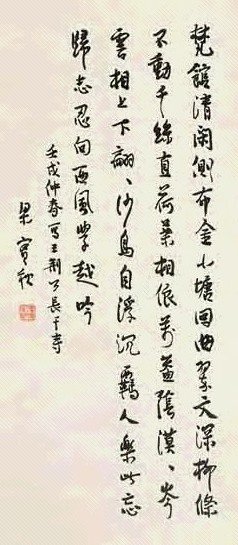 梵館清閑側布金小塘回曲翠文深柳條
不動千絲直荷葉相依萬蓋陰漠〻岑
雲相上下翩〻沙鳥自浮沉羈人樂此忘
歸志忍向西風學越吟
壬戌仲春寫王荊公長干寺
梁實秋